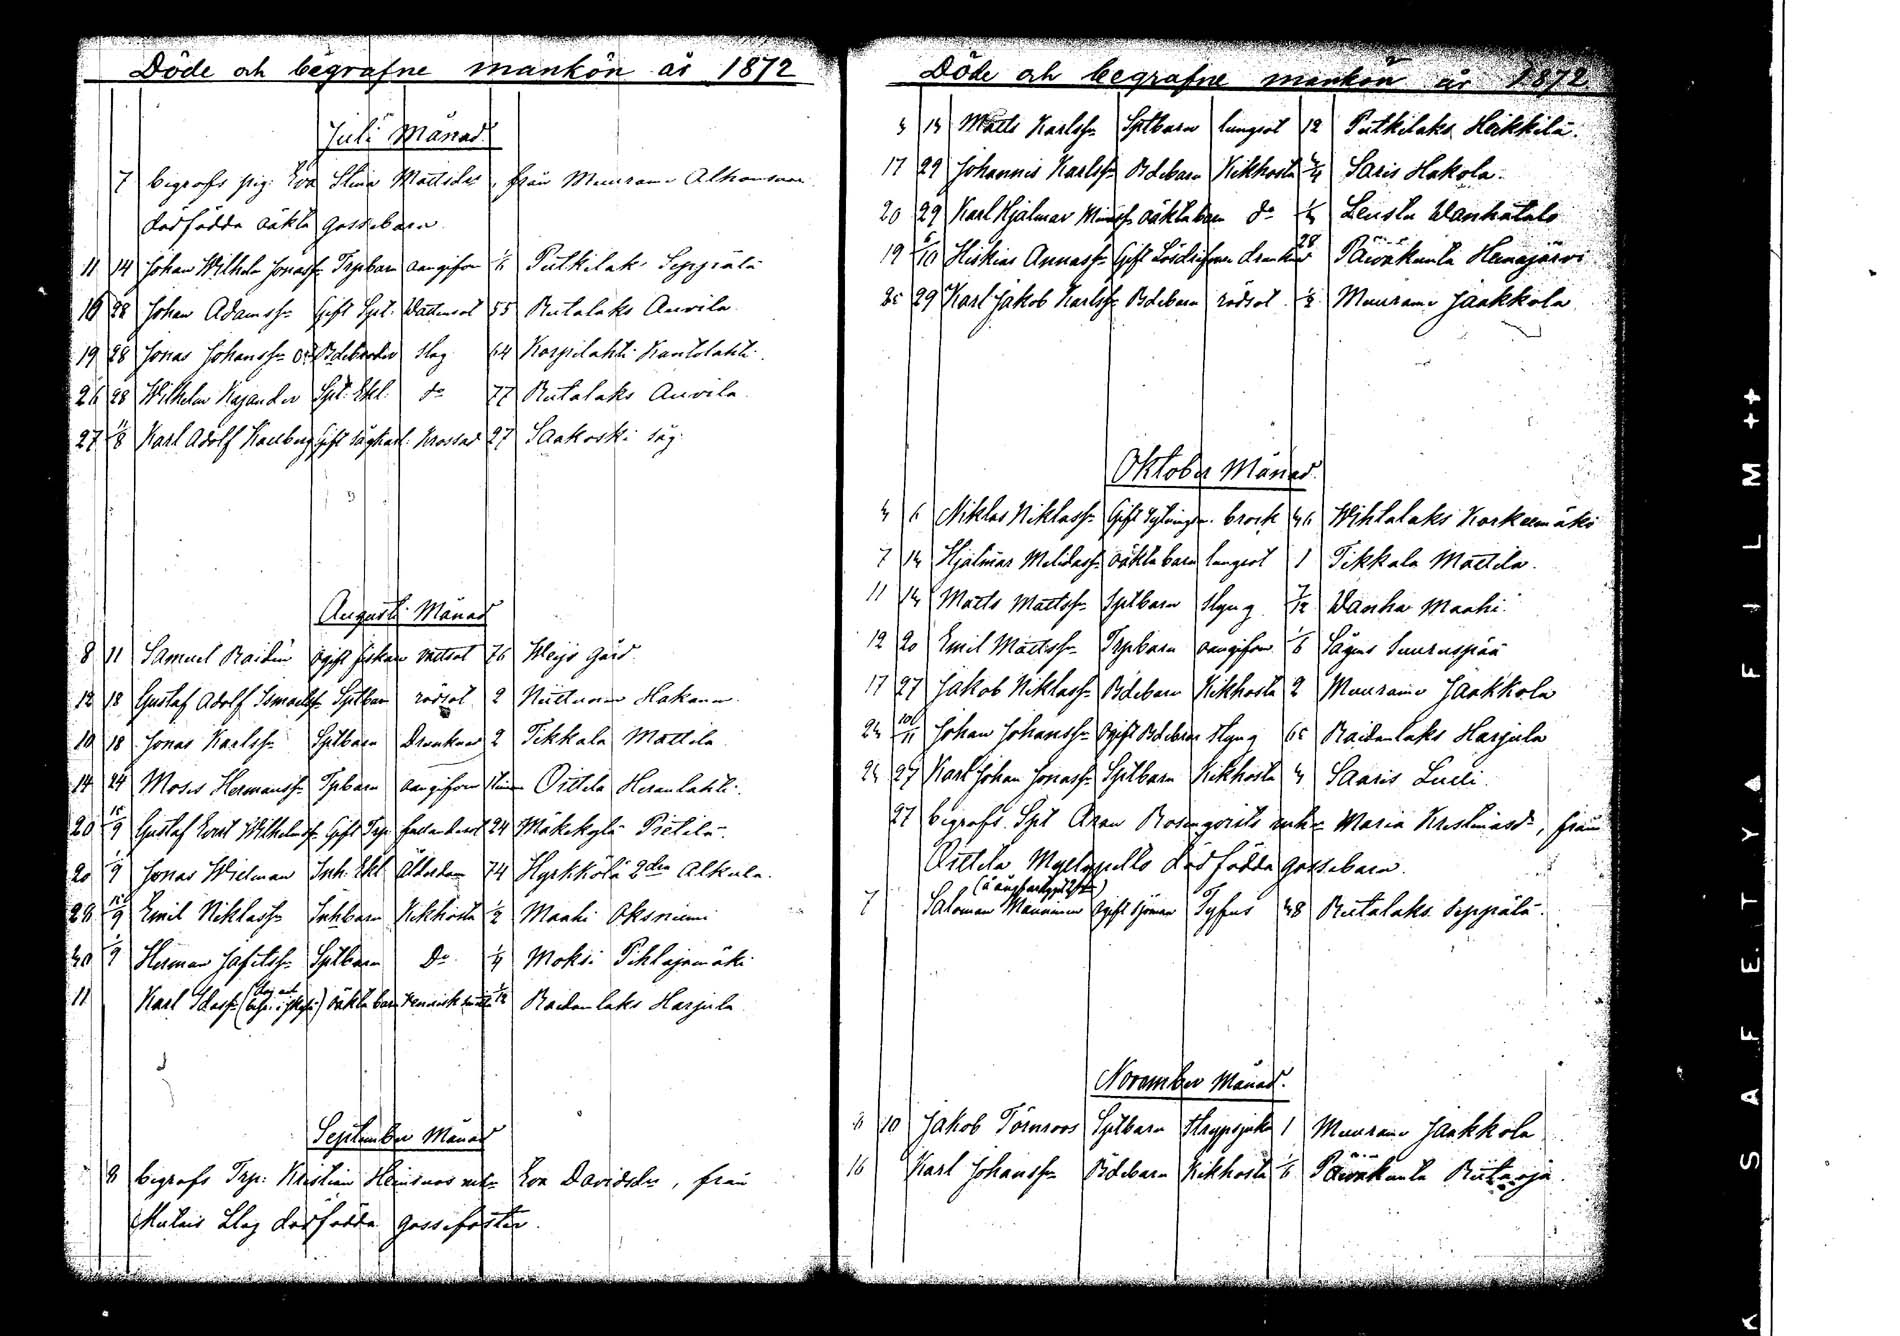 Döde och begrafne mankön år 1872
Juli Månad
7 begrofs pig: Eva Stina Mattsdrs, från Muurame
dödfödda oäkta gossebarn
11 14 Johan Wilhelm Jonass:n Trpbarn oangifven 1/6 Putkilaks Seppälä
16 28 Johan Adamss:n Gift Spt. Wattusot 55 Rutalaks Auvila
19 28 Jonas Johanss:n Bdebroder Slag 64 Korpilahti Kantolahti
26 28 Wilhelm Kajander Spt: Ekl. do 77 Rutalaks Auvila
27 11/8 Karl Adolf Gift Sågkarl: Krossad 27 Saakoski såg
Augusti Månad
8 11 Samuel Raidin ogift fiskare vattsot 76 Weijo gård
12 18 Gustaf Adolf Ismaelss:n Sptbarn rödsot 2 Hakanen
10 18 Jonas Karlss:n Sptbarn Drunknad 2 Tikkala Mattila
14 24 Moses Hermanss:n Tpbarn oangifven Oittila Heranlahti
20 15/9 Gustaf Evert Wilhelmss:n Gift Trp fallandesot 24 Mäkikylä Pietilä
20 1/9 Jonas Widman Inh: Ekl Ålderdom 74 Hyrkkölä 2dra Alkula
28 15/9 Emil Niklass:n Inhbarn Kikhosta 1/2 Maahi Oksniemi
30 1/9 Herman Jafetss:n Sptbarn Do 1/4 Moksi Pihlajamäki
11 Karl Idass:n oäkta barn venerisk 1/12 Raidanlaks Harjula
September Månad
8 begrofs Trp: Kristian Heinonens Eva Davidsdrs, från
dödfödda gossefoster
Döde och begrafne mankön år 1872
3 13 Matts Karlss:n Sptbarn lungsot 12 Putkilaks Heikkilä
17 29 Johannis Karlss:n Bdebarn Kikhosta 3/4 Saris Hakola
20 29 Karl Hjalmar oäkta barn do 1/3 Leustu Wanhatalo
19 6/10 Hiskias Annass:n Gift Lösdrifvare drunknad 28 Päiväkunta Heinäjärvi
25 29 Karl Jakob Karlss:n Bdebarn rödsot 1/2 Muurame Jaakkola
Oktober Månad
3 6 Niklas Niklass:n Gift brock 36 Wihtalaks Korkeemäki
7 13 Hjalmar oäkta barn lungsot 1 Tikkala Mattila
11 13 Matts Mattss:n Sptbarn Styng 7/12 Wanha Maahi
12 20 Emil Mattss:n Trpbarn oangifven 1/6 Sågens Suuruspää
17 27 Jakob Niklass:n Bdebarn Kikhosta 2 Muurame Jaakkola
23 10/11 Johan Johanss:n Ogift Bdebror Styng 65 Raidanlaks Harjula
23 27 Karl Johan Jonass:n Sptbarn Kikhosta 3 Saaris
27 begrofs Spt Aron Rosenqvists Maria Kristinasdr, från
Oittila dödfödda gossebarn
7 Saloman Manninen Ogift Sjöman Tyfus 38 Rutalaks Seppälä
November Månad
6 10 Jakob Törnroos Sptbarn Strypsjuka 1 Muurame Jaakkola
16 Karl Johanss:n Bdebarn Kikhosta 1/6 Päiväkunta Riitaoja
SAFETY FILM